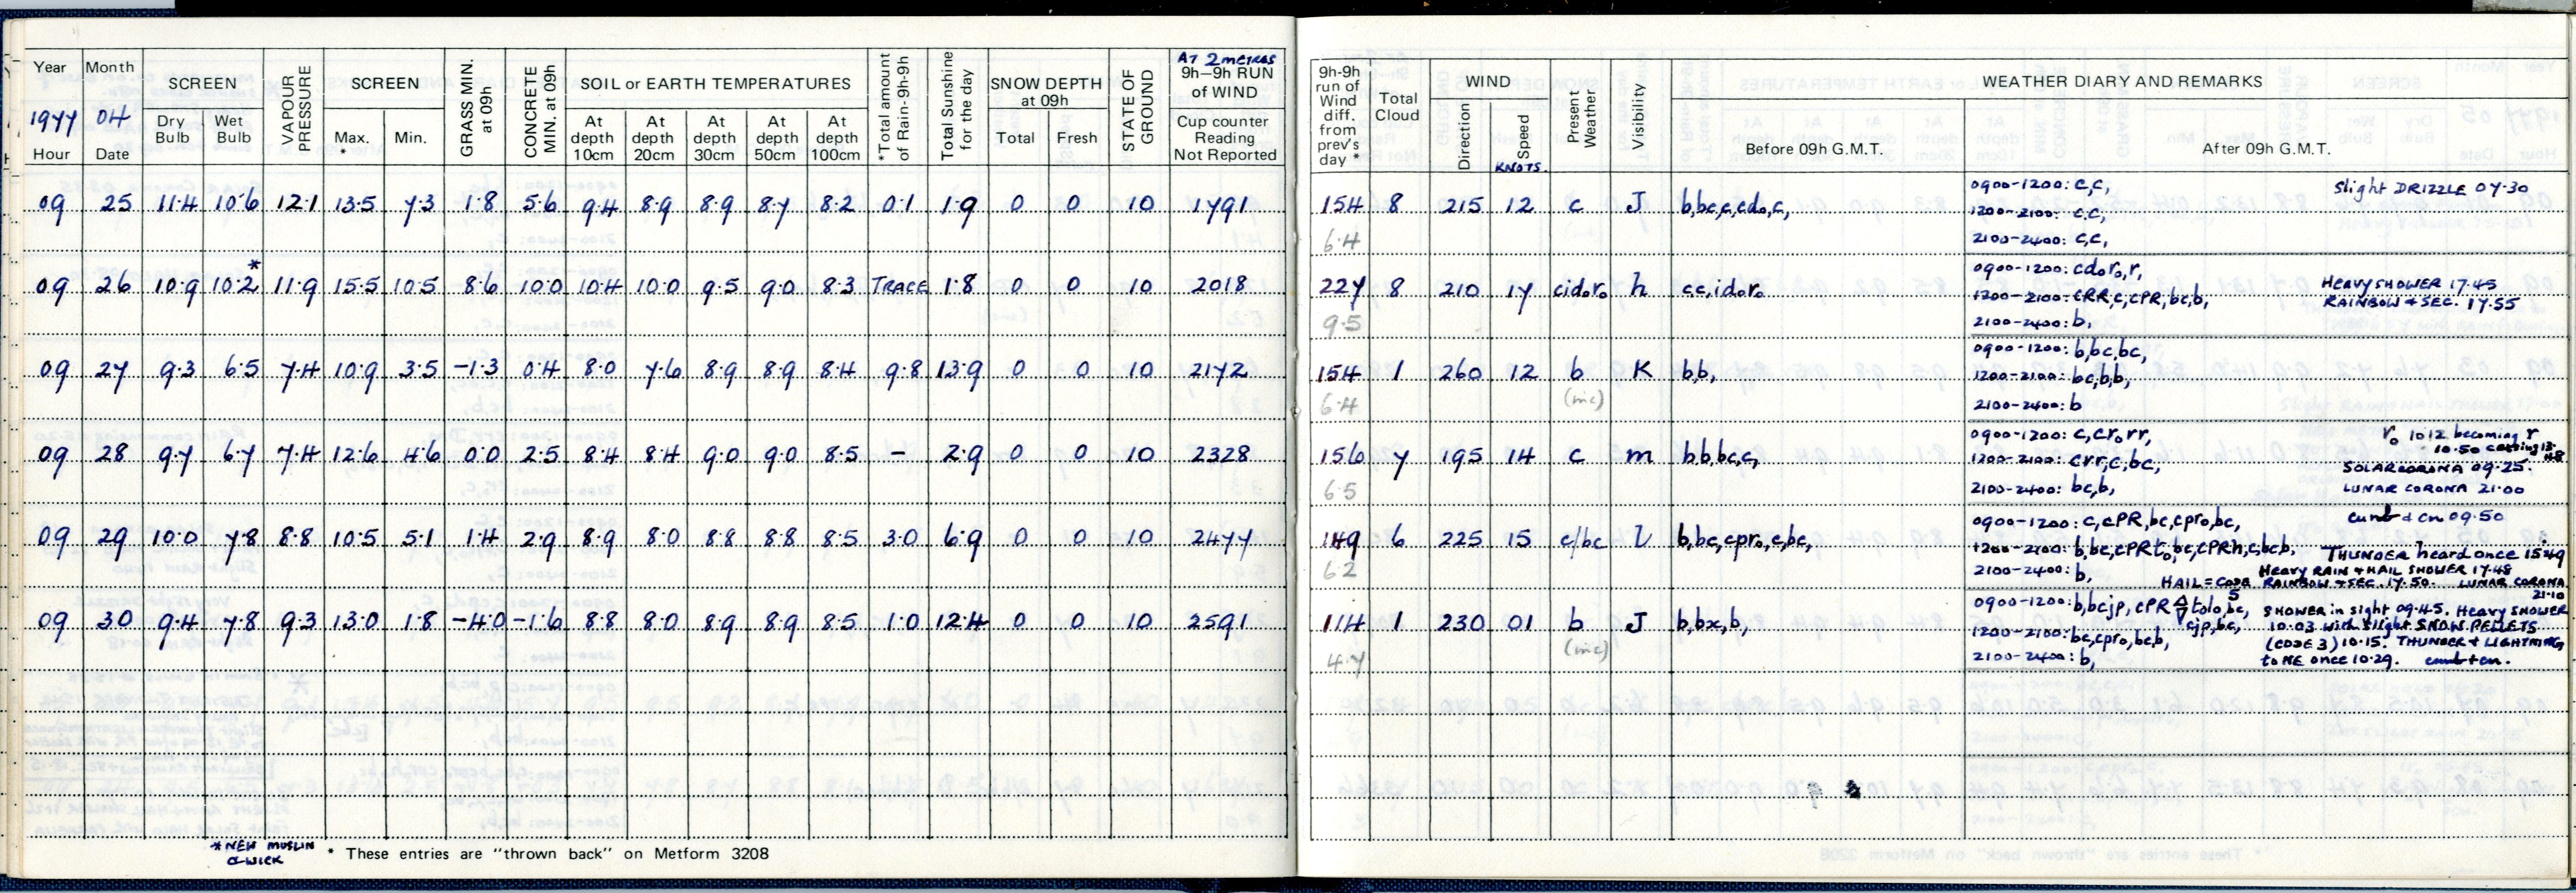 Year Month SCREEN VAPOUR PRESSURE SCREEN GRASS MIN. at 09h CONCRETE MIN. at 09h SOIL or EARTH TEMPERATURES *Total amount of Rain-9h-9h Total Sunshine for the day SNOW DEPTH at 09h STATE OF GROUND AT 2 METRES 9h-9h RUN of WIND
1977 04 Dry Bulb Wet Bulb Max. * Min. At depth 10cm At depth 20cm At depth 30cm At depth 50cm At depth 100cm Total Fresh Cup counter Reading Not Reported
Hour Date
09 25 11.4 10.6 12.1 13.5 7.3 1.8 5.6 9.4 8.9 8.9 8.7 8.2 0.1 1.9 0 0 10 1791
09 26 10.9 10.2* 11.9 15.5 10.5 8.6 10.0 10.4 10.0 9.5 9.0 8.3 TRACE 1.8 0 0 10 2018
09 27 9.3 6.5 7.4 10.9 3.5 -1.3 0.4 8.0 7.6 8.9 8.9 8.4 9.8 13.9 0 0 10 2172
09 28 9.7 6.7 7.4 12.6 4.6 0.0 2.5 8.4 8.4 9.0 9.0 8.5 - 2.9 0 0 10 2328
09 29 10.0 7.8 8.8 10.5 5.1 1.4 2.9 8.9 8.0 8.8 8.8 8.5 3.0 6.9 0 0 10 2477
09 30 9.4 7.8 9.3 13.0 1.8 -4.0 -1.6 8.8 8.0 8.9 8.9 8.5 1.0 12.4 0 0 10 2591
*NEW MUSLIN & WICK
* These entries are "thrown back" on Metform 3208
9h-9h run of Wind diff. from prev's day * Total Cloud WIND Present Weather Visibility WEATHER DIARY AND REMARKS
Direction Speed KNOTS. Before 09h G.M.T. After 09h G.M.T.
154 8 215 12 c J b,bc,c,cdo,c, 0900-1200: c,c, Slight DRIZZLE 07.30
1200-2100: c,c,
6.4 2100-2400: c,c,
227 8 210 17 cidoro h c,c,idoro 0900-1200: cdoro,r, HEAVY SHOWER 17.45
1200-2100: cRR,c,cPR,bc,b, RAINBOW + SEC. 17.55
9.5 2100-2400: b,
154 1 260 12 b K b,b, 0900-1200: b,bc,bc,
1200-2100: bc,b,b,
6.4 (mc) 2100-2400: b
156 7 195 14 c m b,b,bc,c, 0900-1200: c,cro,rr, ro 1012 becoming r
10.50
1200-2100: crr,c,bc, SOLAR CORONA 09.25.
6.5 2100-2400: bc,b, LUNAR CORONA 21.00
149 6 225 15 c/bc l b,bc,cpro,c,bc, 0900-1200: c,cPR,bc,cpro,bc, cumb & cn 09.50
1200-2100: b,bc,cPRto,bc,cPRh,c,bc,b, THUNDER heard once 15.49
6.2 2100-2400: b, HEAVY RAIN + HAIL SHOWER 17.48
HAIL = CODE 5 RAINBOW + SEC. 17.50. LUNAR CORONA 21.10
114 1 230 01 b J b,bx,b, 0900-1200: b,bcjp, cPR tolo,bc, cjp,bc, SHOWER in sight 09.45. HEAVY SHOWER
10.03 with slight SNOW PELLETS
1200-2100: bc,cpro,bc,b, (CODE 3) 10.15. THUNDER + LIGHTNING
4.7 (mc) 2100-2400: b, to NE once 10.29. cumb + cn.